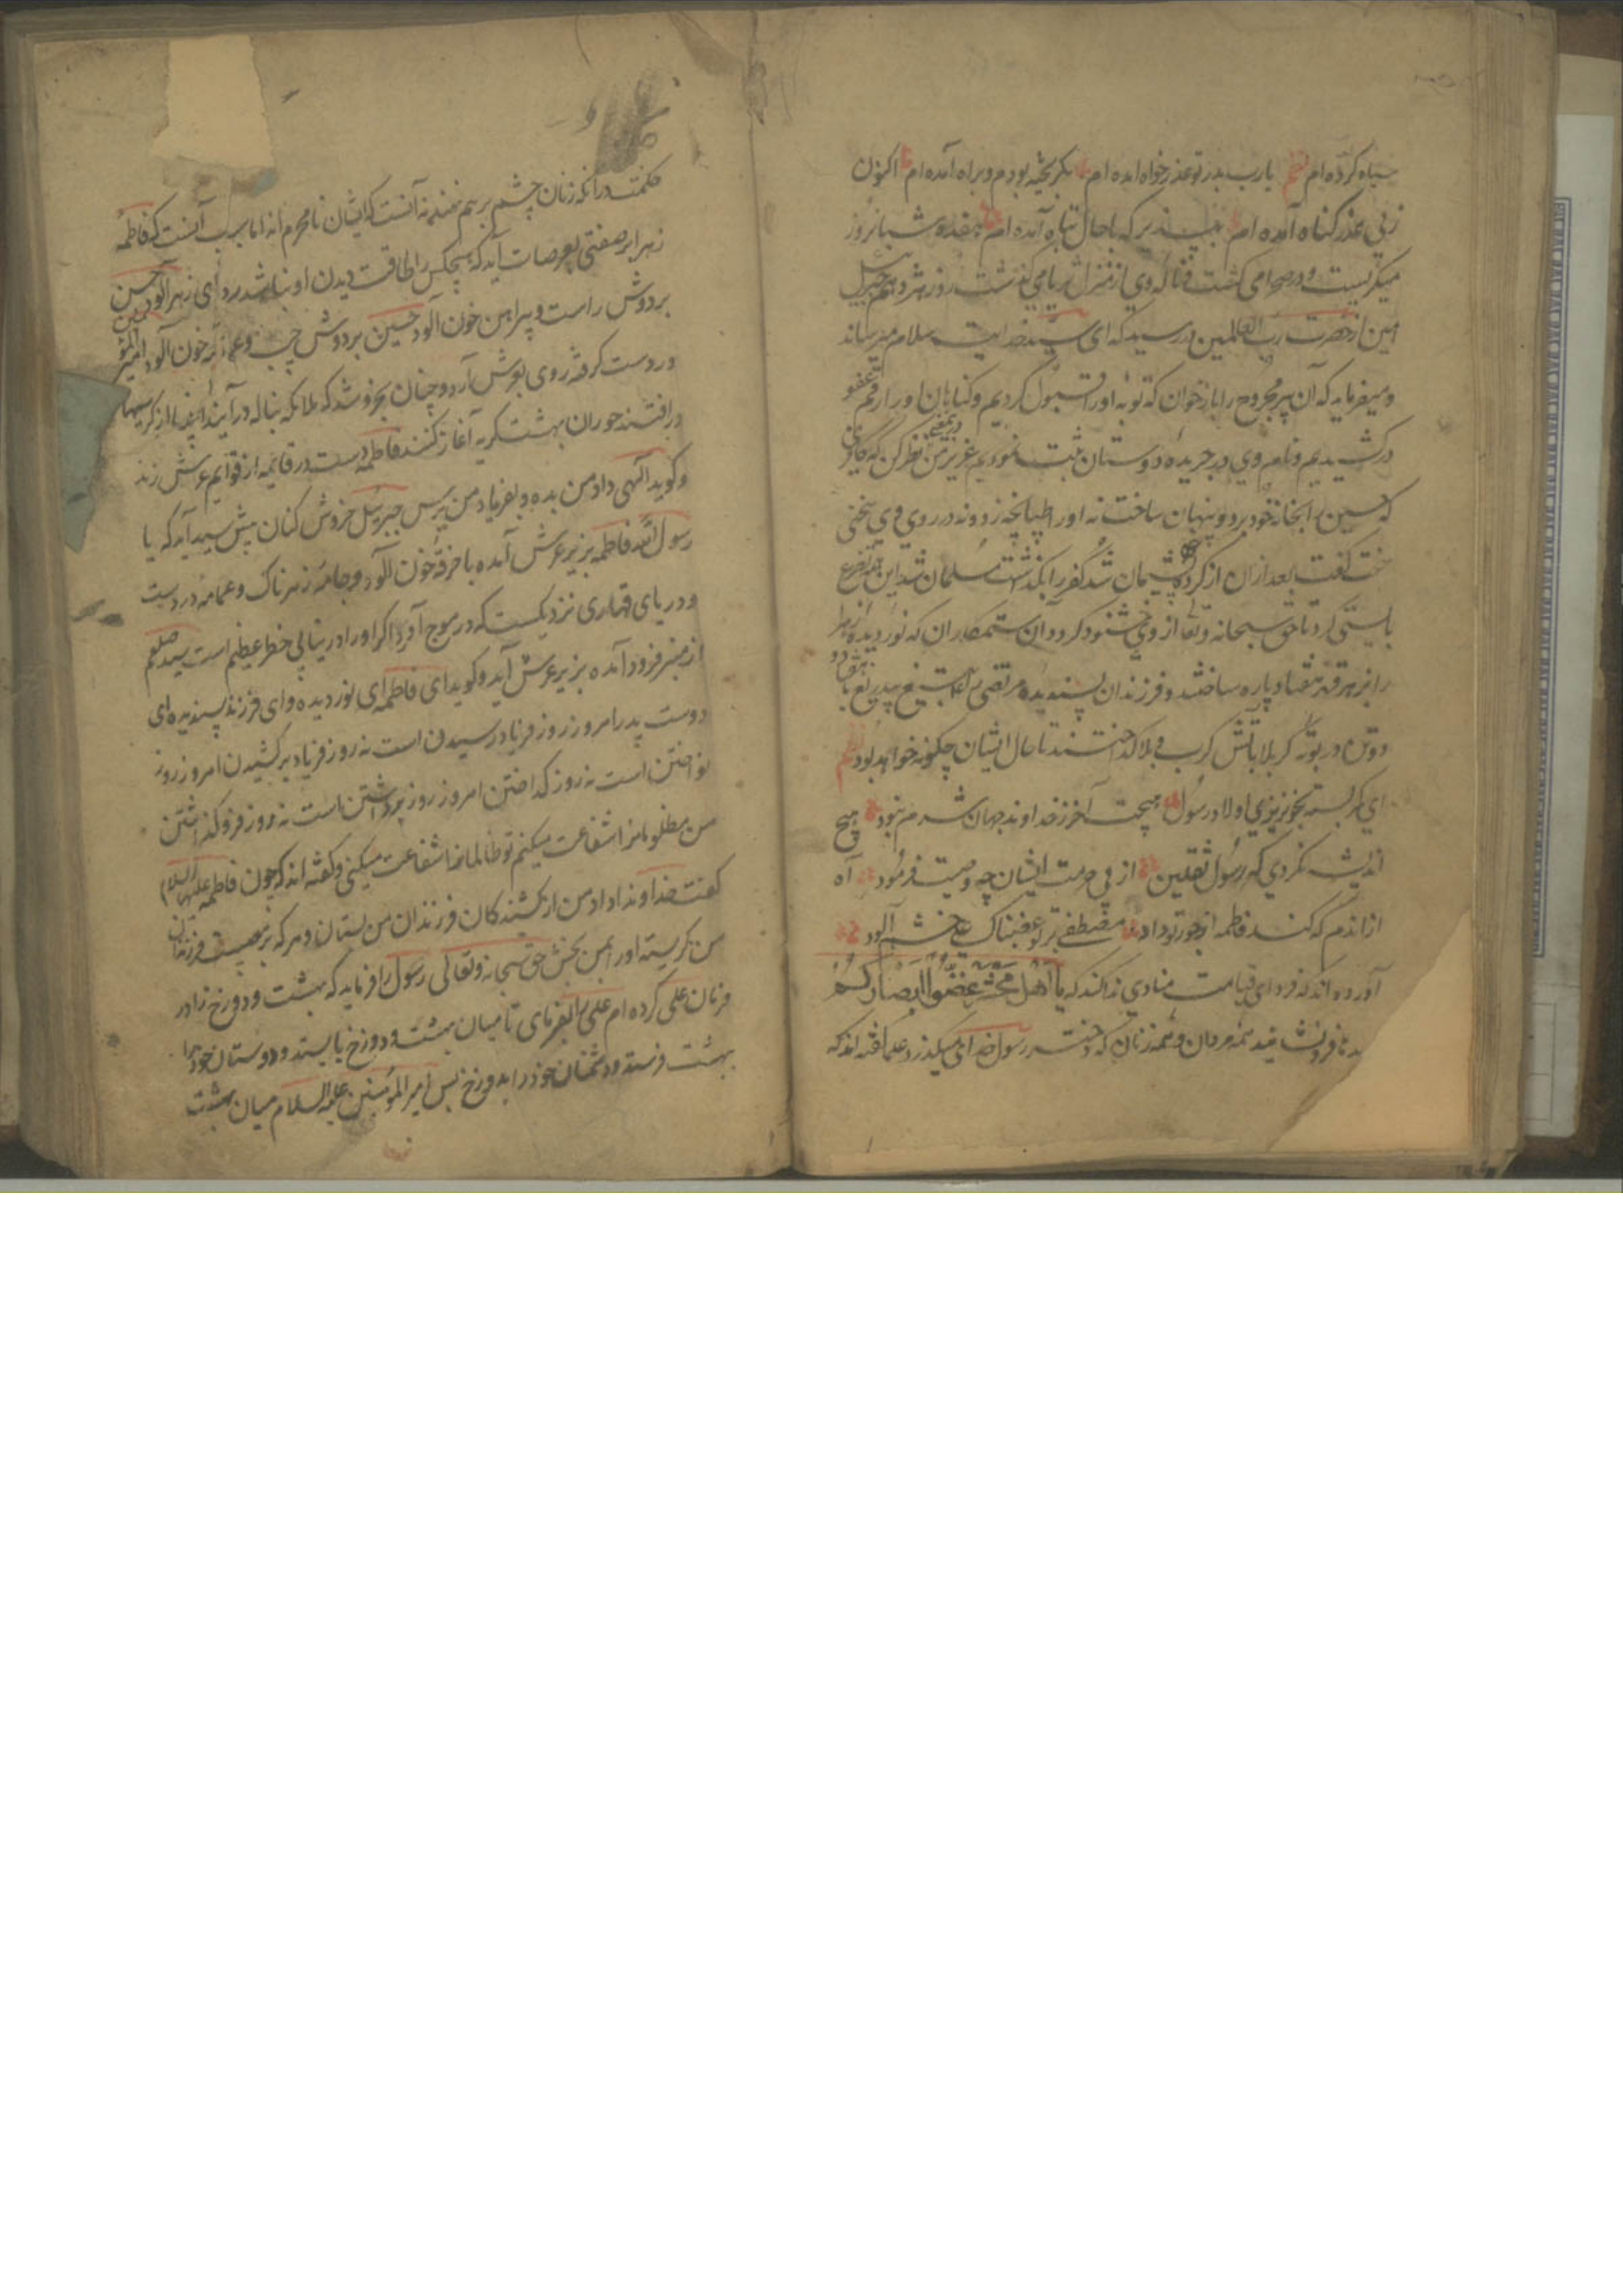 سیاه کرده ام نظم یارب بدر تو عذر خواه آمده ام بگریخته بودم و براه آمده ام اکنون
زپی عذر گناه آمده ام بپذیر که با حال تباه آمده ام هفده شبانروز
میگریست و در صحرا می گشت و ناله وی از منزل ثریا می گذشت روز هژدهم جبرئیل
امین از حضرت رب العالمین در رسید که ای سید خدایت سلام میرساند
و میفرماید که آن پیر مجروح را باز خوان که توبه او را قبول کردیم و گناهان او را رقم عفو
در کشیدیم و نام وی در جریده دوستان ثبت نمودیم عزیز من درین معنی نظر کن که کافری
که حسین را بخانه خود برد و پنهان ساخت نه او را طپانچه زد و نه در روی وی سخنی
سخت گفت بعد ازان از کرده پشیمان شد کفر را بگذاشت مسلمان شد این همه تضرع
بایستی کرد تا حق سبحانه و تعالی از وی خشنود گردد آن ستمکاران که نور دیده زهرا
را بزهر قهر هفتاد پاره ساختند و فرزندان پسندیده مرتضی را به تیغ بیدریغ با هفتاد و
دو تن در بوته کربلا بآتش کرب و بلا گداختند تا حال ایشان چگونه خواهد بود نظم
ای کمر بسته بخونریزی اولاد رسول هیچت آخر ز خداوند جهان شرم نبود هیچ
اندیشه نکردی که رسول ثقلین از پی حرمت ایشان چه وصیت فرمود آه
ازاندم که کند فاطمه از جور تو داد مصطفی بر تو غضبناک و علی خشم آلود
آورده اند که فردای قیامت منادی ندا کند که یا اهل محشر غضوا ابصارکم
دیدها فرو نشانید همه مردان و همه زنان که دختر رسول خدای میگذرد علما گفته اند که
حکمت در آنکه زنان چشم بر هم نهند نه آنست که ایشان نامحرم اند اما سبب آنست که فاطمه
زهرا بر صفتی بعرصات آید که هیچکس را طاقت دیدن او نباشد ردای زهر آلود حسن
بر دوش راست و پیراهن خون آلود حسین بر دوش چپ و عمامه خون آلود امیر المؤمنین
در دست گرفته روی بعرش آرد و چنان بخروشد که ملائکه بناله در آیند انبیا از کرسیها
در افتند حوران بهشت گریه آغاز کنند فاطمه دست در قائمه از قوائم عرش زند
و گوید الهی داد من بده و بفریاد من برس جبرئیل خروش کنان پیش سید آید که یا
رسول الله فاطمه بزیر عرش آمده با خرقه خون آلود و جامه زهرناک و عمامه در دست
و دریای قهاری نزدیکست که در موج آید اگر او را در نیابی خطر عظیم است سید صلعم
از منبر فرود آمده بزیر عرش آید و گوید ای فاطمه ای نور دیده و ای فرزند پسندیده ای
دوست پدر امروز روز فریاد رسیدن است نه روز فریاد بر کشیدن امروز روز
نواختن است نه روز گداختن امروز روز برداشتن است نه روز فرو گذاشتن
من مظلومانرا شفاعت میکنم تو ظالمانرا شفاعت میکنی و گفته اند که چون فاطمه علیها السلام
گفت خداوندا داد من از کشندگان فرزندان من بستان و هر که بر مصیبت فرزندان
من گریسته او را بمن بخش حق سبحانه و تعالی رسول را فرماید که بهشت و دوزخ را در
فرمان علی کرده ام علی را بفرمای تا میان بهشت و دوزخ بایستد و دوستان خود را
بهشت فرستد و دشمنان خود را بدوزخ پس امیر المؤمنین علیه السلام میان بهشت